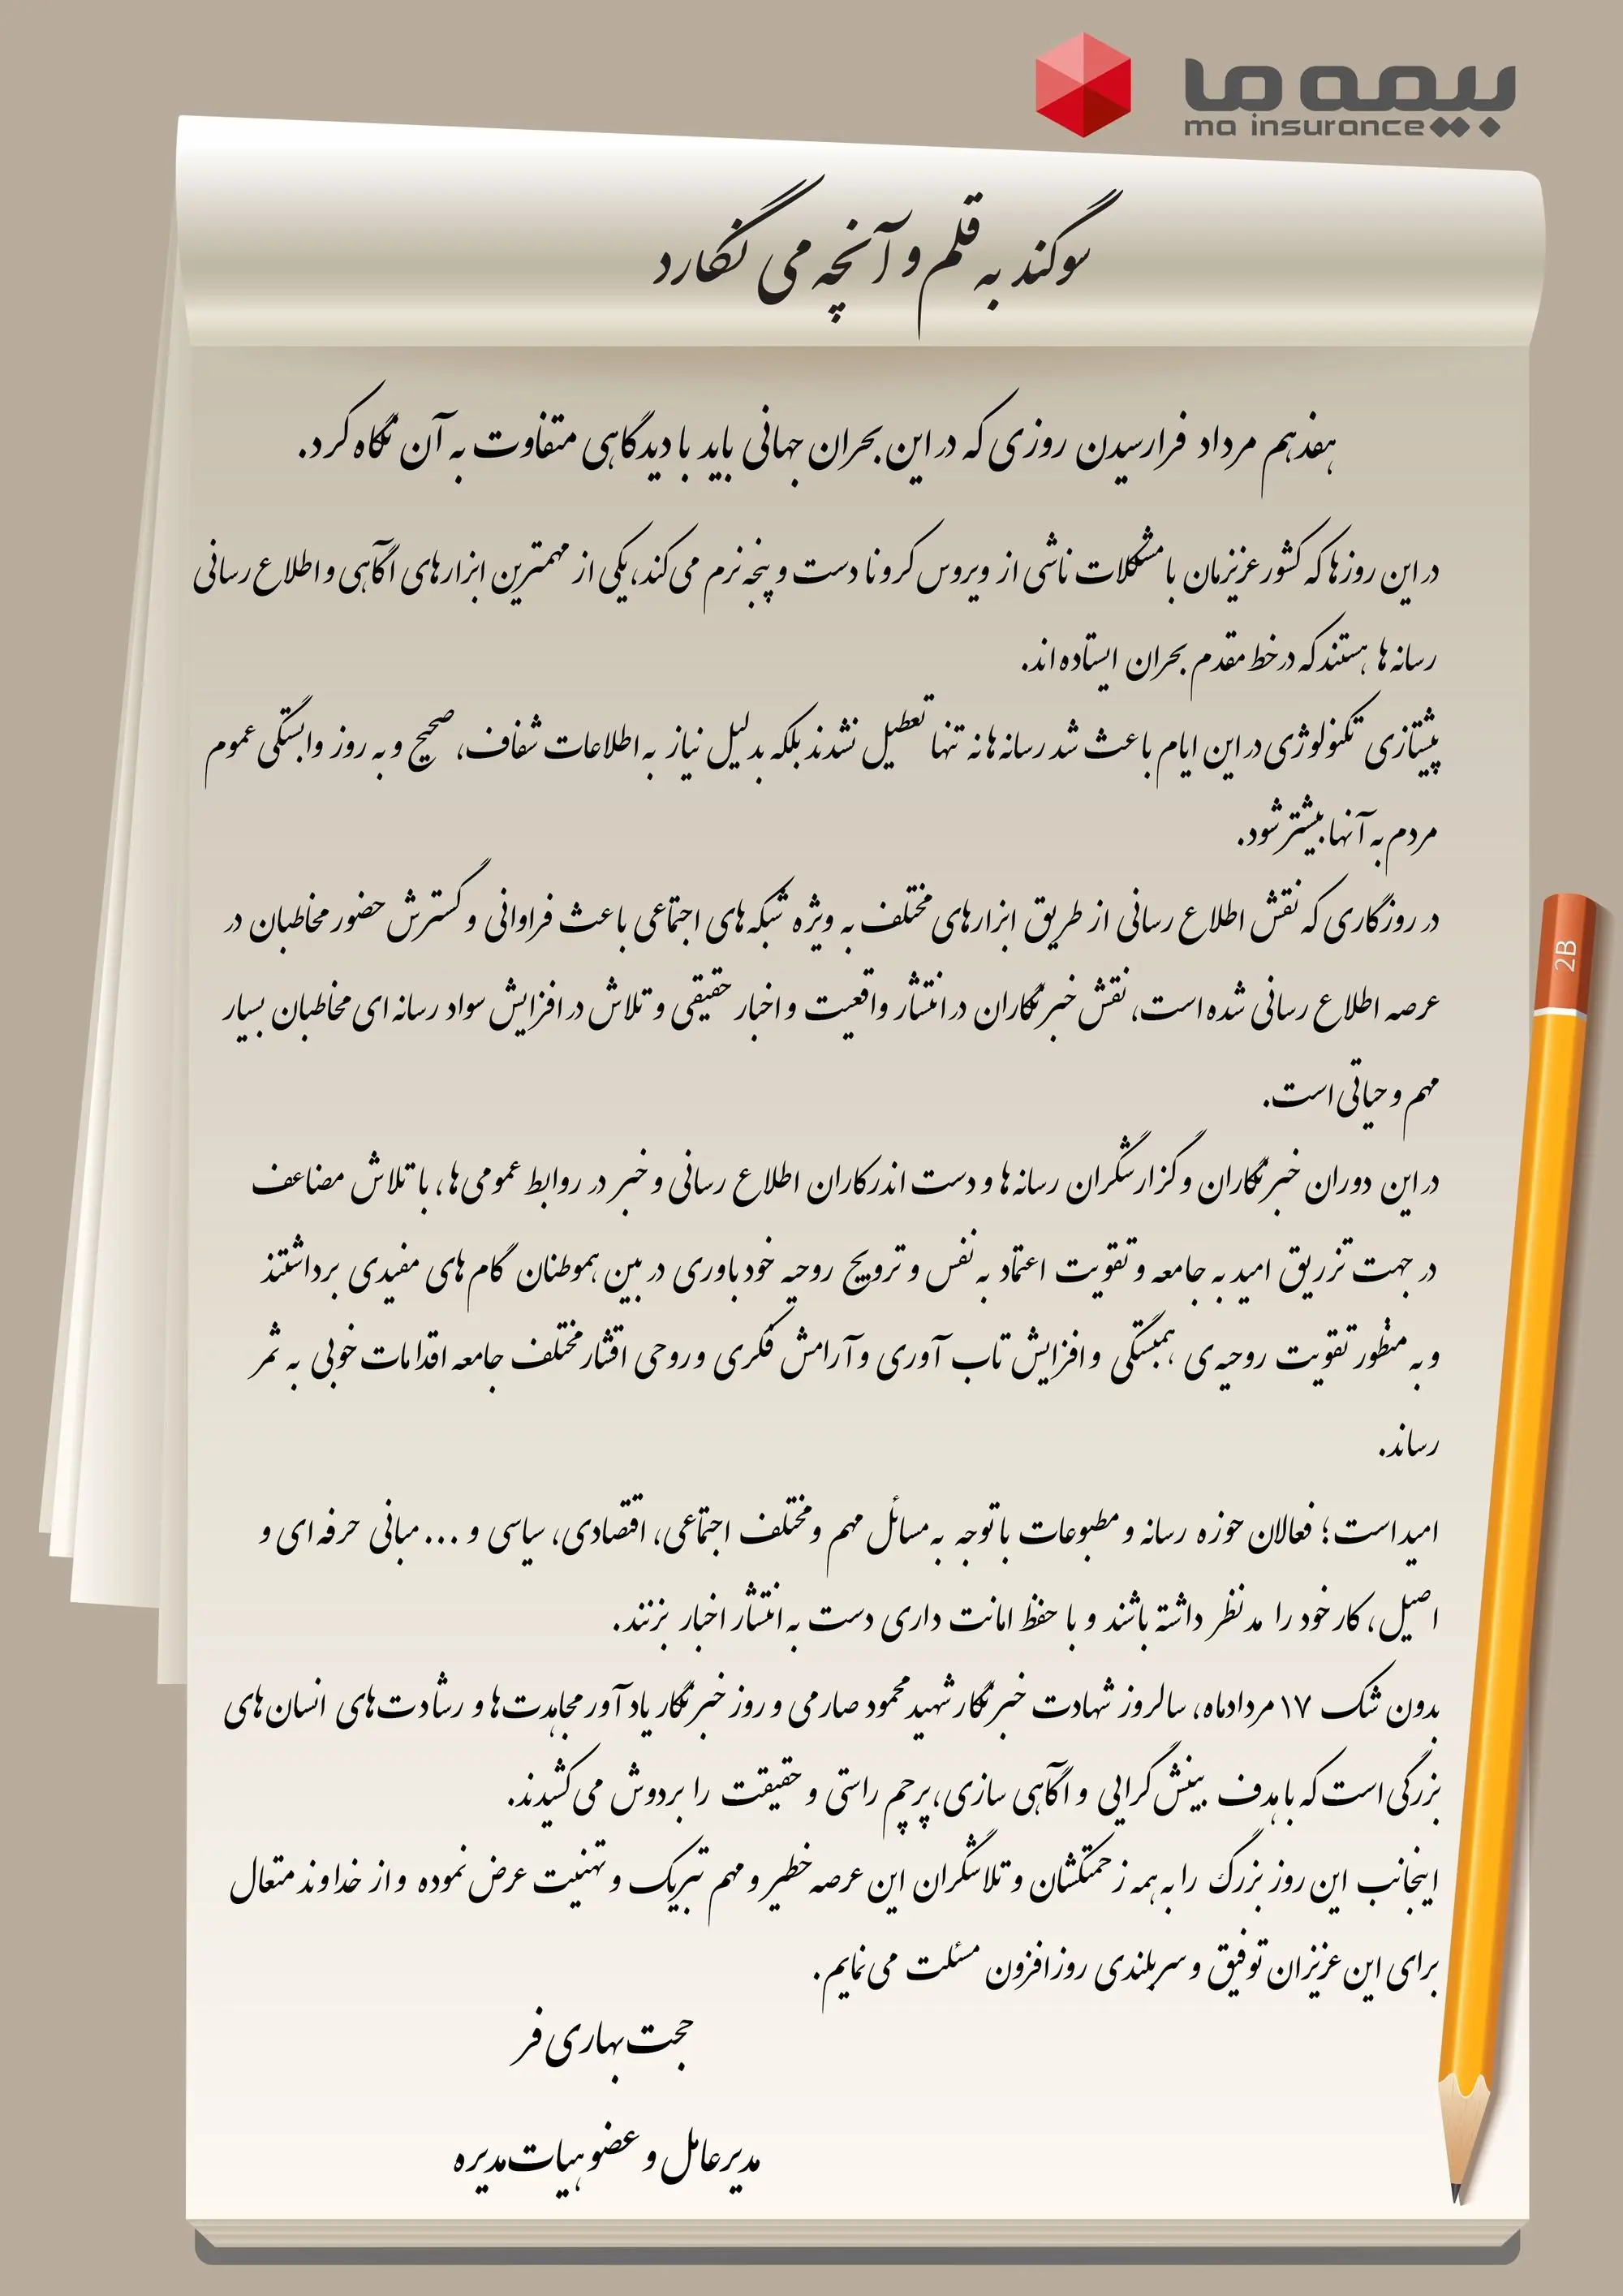 بیمه ما
ma insurance
سوگند به قلم و آنچه می نگارد
هفدهم مرداد فرارسیدن روزی که در این بحران جهانی باید با دیدگاهی متفاوت به آن نگاه کرد.
در این روزها که کشور عزیزمان با مشکلات ناشی از ویروس کرونا دست و پنجه نرم می‌کند، یکی از مهمترین ابزارهای آگاهی و اطلاع رسانی
رسانه‌ها هستند که در خط مقدم بحران ایستاده‌اند.
پیشتازی تکنولوژی در این ایام باعث شد رسانه‌ها نه تنها تعطیل نشدند بلکه بدلیل نیاز به اطلاعات شفاف، صحیح و به روز وابستگی عموم
مردم به آنها بیشتر شود.
در روزگاری که نقش اطلاع رسانی از طریق ابزارهای مختلف به ویژه شبکه‌های اجتماعی باعث فراوانی و گسترش حضور مخاطبان در
عرصه اطلاع رسانی شده است، نقش خبرنگاران در انتشار واقعیت و اخبار حقیقی و تلاش در افزایش سواد رسانه ای مخاطبان بسیار
مهم و حیاتی است.
در این دوران خبرنگاران و گزارشگران رسانه‌ها و دست اندرکاران اطلاع رسانی و خبر در روابط عمومی‌ها، با تلاش مضاعف
در جهت تزریق امید به جامعه و تقویت اعتماد به نفس و ترویج روحیه خودباوری در بین هموطنان گام های مفیدی برداشتند
و به منظور تقویت روحیه‌ی همبستگی و افزایش تاب آوری و آرامش فکری و روحی اقشار مختلف جامعه اقدامات خوبی به ثمر
رساند.
امید است؛ فعالان حوزه رسانه و مطبوعات با توجه به مسائل مهم و مختلف اجتماعی، اقتصادی، سیاسی و ... مبانی حرفه ای و
اصیل، کار خود را مد نظر داشته باشند و با حفظ امانت داری دست به انتشار اخبار بزنند.
بدون شک ۱۷ مردادماه، سالروز شهادت خبرنگار شهید محمود صارمی و روز خبرنگار یادآور مجاهدت‌ها و رشادت‌های انسان‌های
بزرگی است که با هدف بینش گرایی و آگاهی سازی، پرچم راستی و حقیقت را بر دوش می‌کشیدند.
اینجانب این روز بزرگ را به همه زحمتکشان و تلاشگران این عرصه خطیر و مهم تبریک و تهنیت عرض نموده و از خداوند متعال
برای این عزیزان توفیق و سربلندی روزافزون مسئلت می‌نمایم.
حجت بهاری فر
مدیرعامل و عضو هیات مدیره
2B